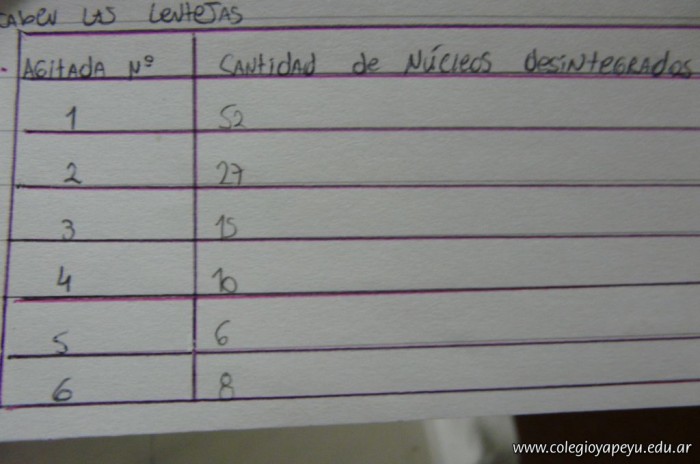 CABEN LAS LENTEJAS
AGITADA Nº CANTIDAD de NÚCLEOS desINTEGRADOS
1 52
2 27
3 15
4 10
5 6
6 8
www.colegioyapeyu.edu.ar